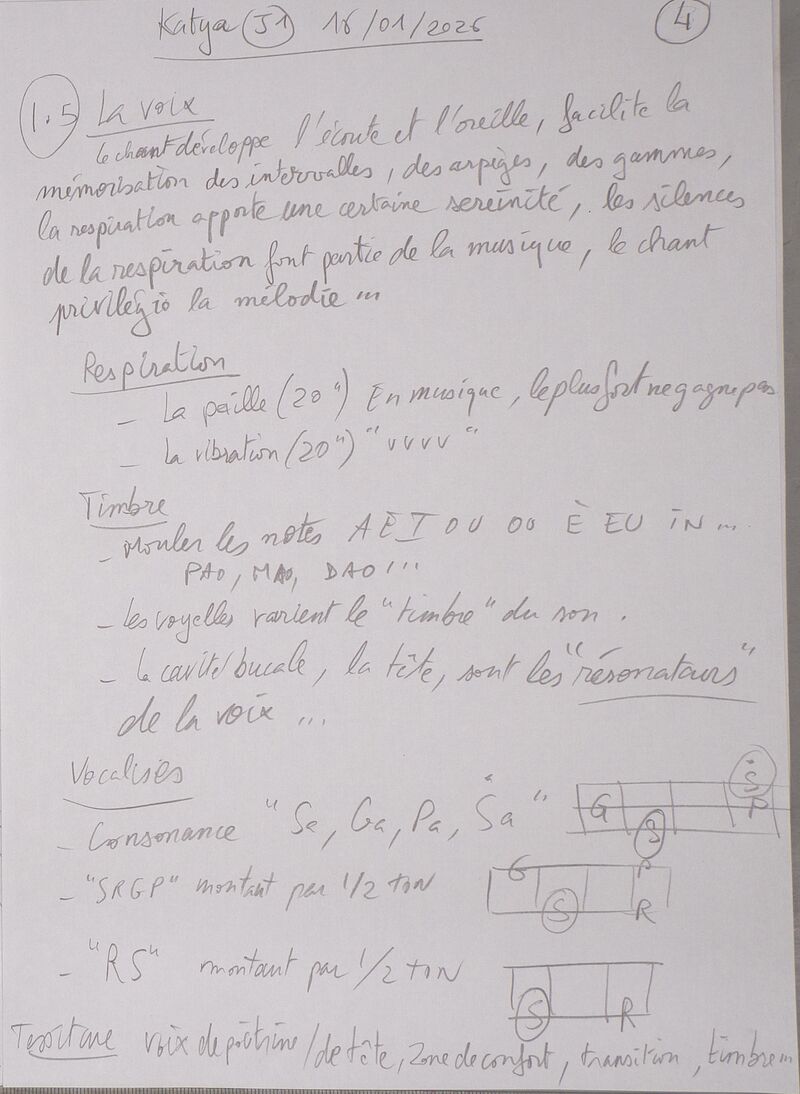 Katya (J1) 16/01/2026
4
1.5 La voix
le chant développe l'écoute et l'oreille, facilite la
mémorisation des intervalles, des arpèges, des gammes,
la respiration apporte une certaine sereinité, les silences
de la respiration font partie de la musique, le chant
privilégie la mélodie ...
Respiration
- La paille (20") En musique, le plus fort ne gagne pas
- La vibration (20") "vvvv"
Timbre
- Mouler les notes A E I O U OU È EU IN ...
PAO, MAO, DAO ...
- les voyelles varient le "timbre" du son.
- la cavité bucale, la tête, sont les "résonateurs"
de la voix ...
Vocalises
- Consonance "Sa, Ga, Pa, Ṡa"
G S P Ṡ
- "SRGP" montant par 1/2 TON
G S P R
- "RS" montant par 1/2 TON
S R
Tessiture voix de poitrine / de tête, zone de confort, transition, timbre ...